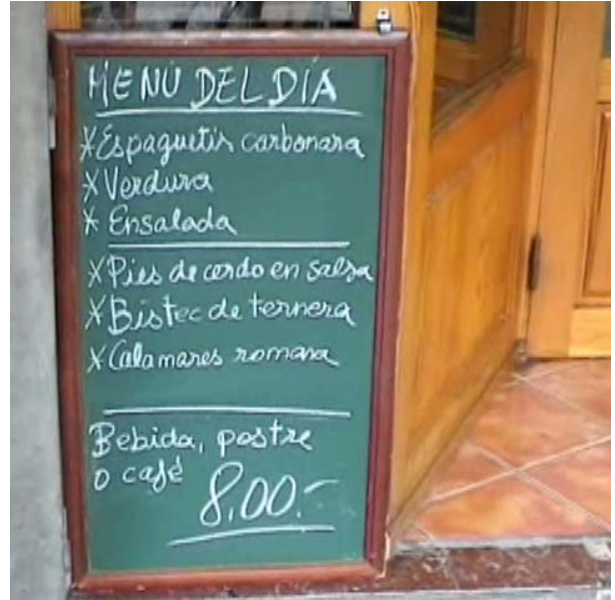 MENÚ DEL DÍA
* Espaguetis carbonara
* Verdura
* Ensalada
* Pies de cerdo en salsa
* Bistec de ternera
* Calamares romana
Bebida, postre
o café
8,00.-